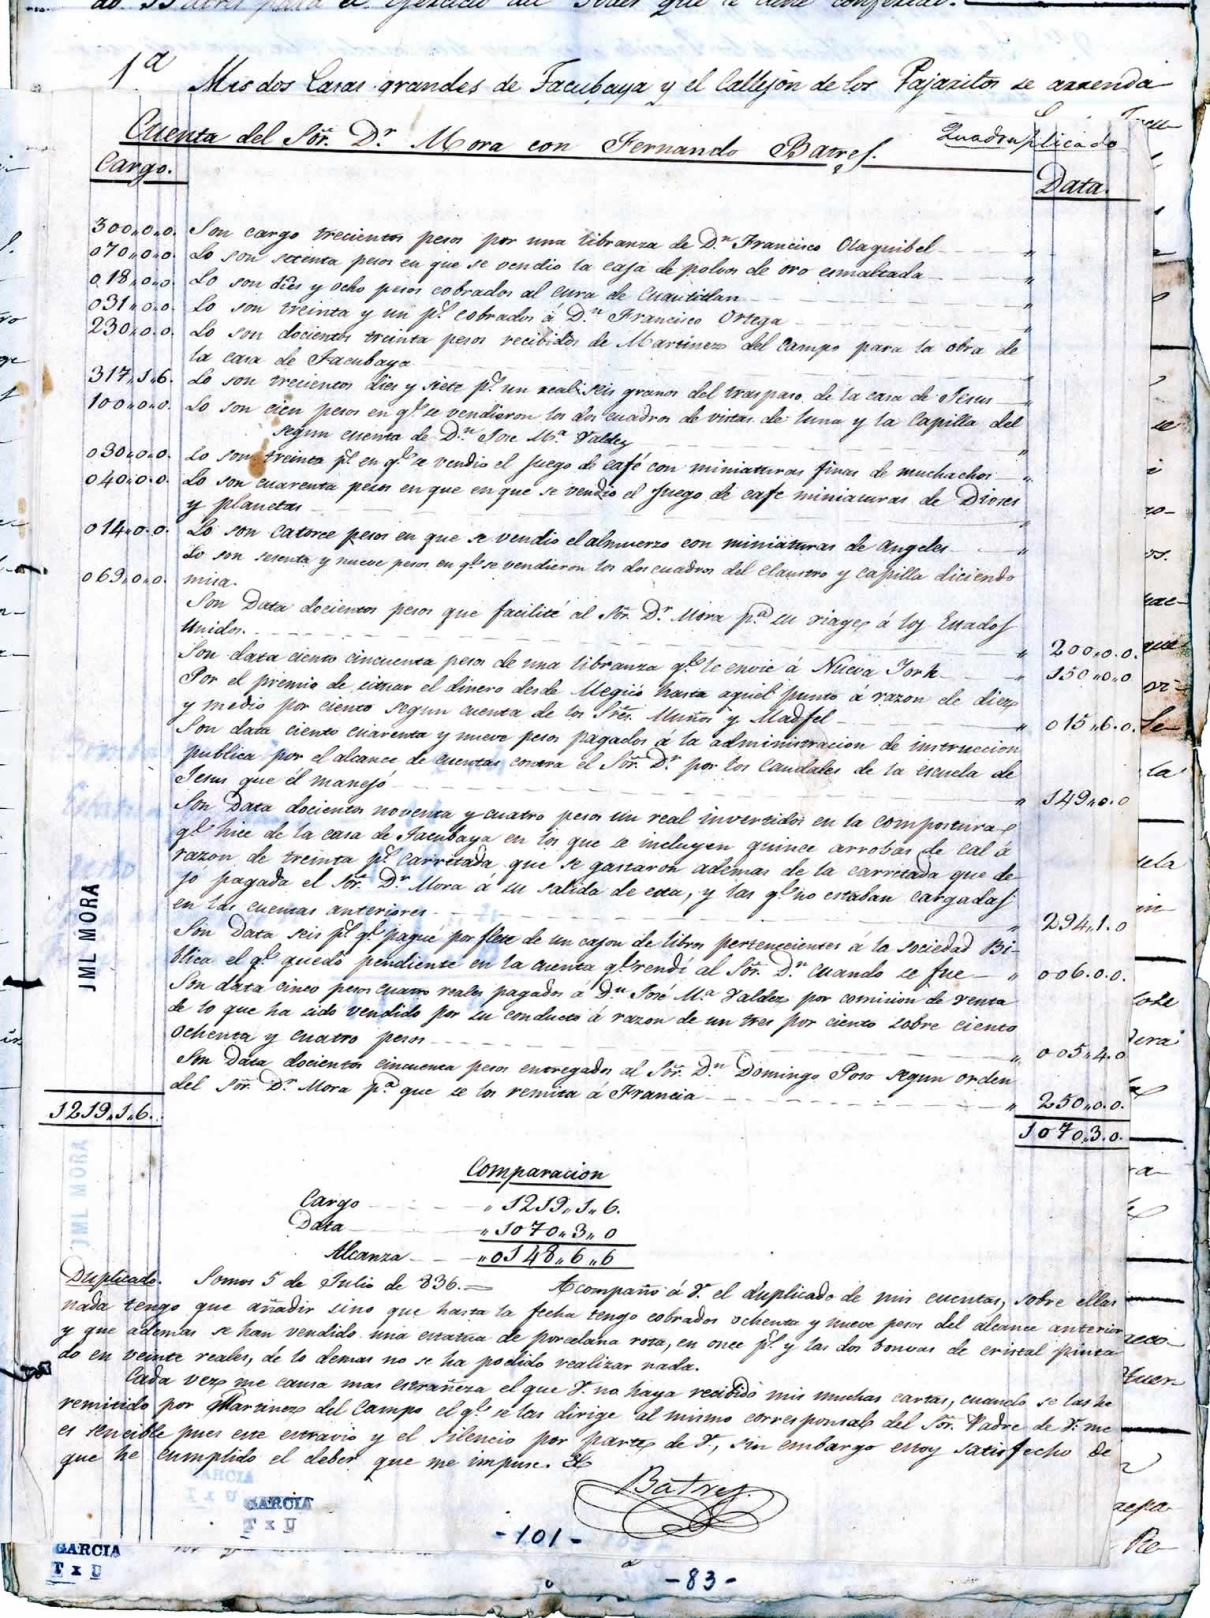 1ª Mis dos Casas grandes de Tacubaya y el Callejón de los Pajaritos se arrenda
Quadruplicado
Cuenta del Sõr. Dr. Mora con Fernando Batres.
Cargo.
Data.
300,,0,,0. Son cargo trecientos pesos por una libranza de Dn. Francisco Olaguibel
070,,0,,0. Lo son setenta pesos en que se vendio la caja de polvos de oro esmaltada
018,,0,,0. Lo son dies y ocho pesos cobrados al cura de Cuautitlan
031,,0,,0. Lo son treinta y un ps. cobrados á Dn. Francisco Ortega
230,,0,,0. Lo son docientos treinta pesos recibidos de Martinez del Campo para la obra de
la casa de Tacubaya
317,,1,,6. Lo son trecientos dies y siete ps. un real seis granos del traspaso de la casa de Jesus
100,,0,,0. Lo son cien pesos en qe. se vendieron los dos cuadros de vistas de luna y la Capilla del
segun cuenta de Dn. Jose Ma. Valdez
030,,0,,0. Lo son treinta ps. en qe. se vendio el juego de café con miniaturas finas de muchachos
040,,0,,0. Lo son cuarenta pesos en que en que se vendio el juego de cafe miniaturas de Dioses
y planetas
014,,0,,0. Lo son catorce pesos en que se vendio el almuerzo con miniaturas de angeles
Lo son sesenta y nueve pesos en qe. se vendieron los dos cuadros del claustro y capilla diciendo
069,,0,,0. misa.
Son Data docientos pesos que facilité al Sõr. Dr. Mora pa. su viage á los Estados
Unidos. 200,,0,,0.
Son data ciento cincuenta pesos de una libranza qe. le envie á Nueva York 150,,0,,0
Por el premio de situar el dinero desde Megico hasta aquel punto á razon de diez
y medio por ciento segun cuenta de los Sres. Muños y Madfel 015,,6,,0.
Son data ciento cuarenta y nueve pesos pagados á la administracion de instruccion
publica por el alcance de cuentas contra el Sõr. Dr. por los caudales de la escuela de
Jesus que él manejó 149,,0,,0
Son Data docientos noventa y cuatro pesos un real invertidos en la compostura
qe. hice de la casa de Tacubaya en los que se incluyen quince arrobas de cal á
razon de treinta ps. carretada que se gastaron ademas de la carretada que de-
jo pagada el Sõr. Dr. Mora á su salida de esta, y las qe. no estaban cargadas
en las cuentas anteriores 294,,1,,0
Son Data seis ps. qe. pagué por flete de un cajon de libros pertenecientes á la sociedad Bi-
blica el qe. quedó pendiente en la cuenta qe. rendí al Sõr. Dr. cuando se fue 006.0.0.
Son data cinco pesos cuatro reales pagados á Dn. José Ma. Valdez por comision de venta
de lo que ha sido vendido por su conducto á razon de un tres por ciento sobre ciento
ochenta y cuatro pesos 005,,4,,0
Son Data docientos cincuenta pesos entregados al Sõr. Dn. Domingo Poso segun orden
del Sõr. Dr. Mora pa. que se los remita á Francia 250,,0,,0.
1219,,1,,6. 1070,,3,,0.
Comparacion
Cargo ,,1219,,1,,6.
Data ,,1070,,3,,0
Alcanza ,,0148,,6,,6
Duplicado. Somos 5 de Julio de 836.= Acompaño á V. el duplicado de mis cuentas, sobre ellas
nada tengo que añadir sino que hasta la fecha tengo cobrados ochenta y nueve pesos del alcance anterior
y que ademas se han vendido una estatua de porcelana rota, en once ps. y las dos bonvas de cristal pinta
do en veinte reales, de lo demas no se ha podido realizar nada.
Cada vez me causa mas estrañeza el que V. no haya recibido mis muchas cartas, cuando se las he
remitido por Martinez del Campo el qe. se las dirige al mismo corresponsal del Sõr. Padre de V. me
es sencible pues este estravio y el silencio por parte de V., sin embargo estoy satisfecho de
que he cumplido el deber que me impuse.
Batres.
JML MORA
JML MORA
GARCIA
T x U
-101-
GARCIA
T x U
-83-